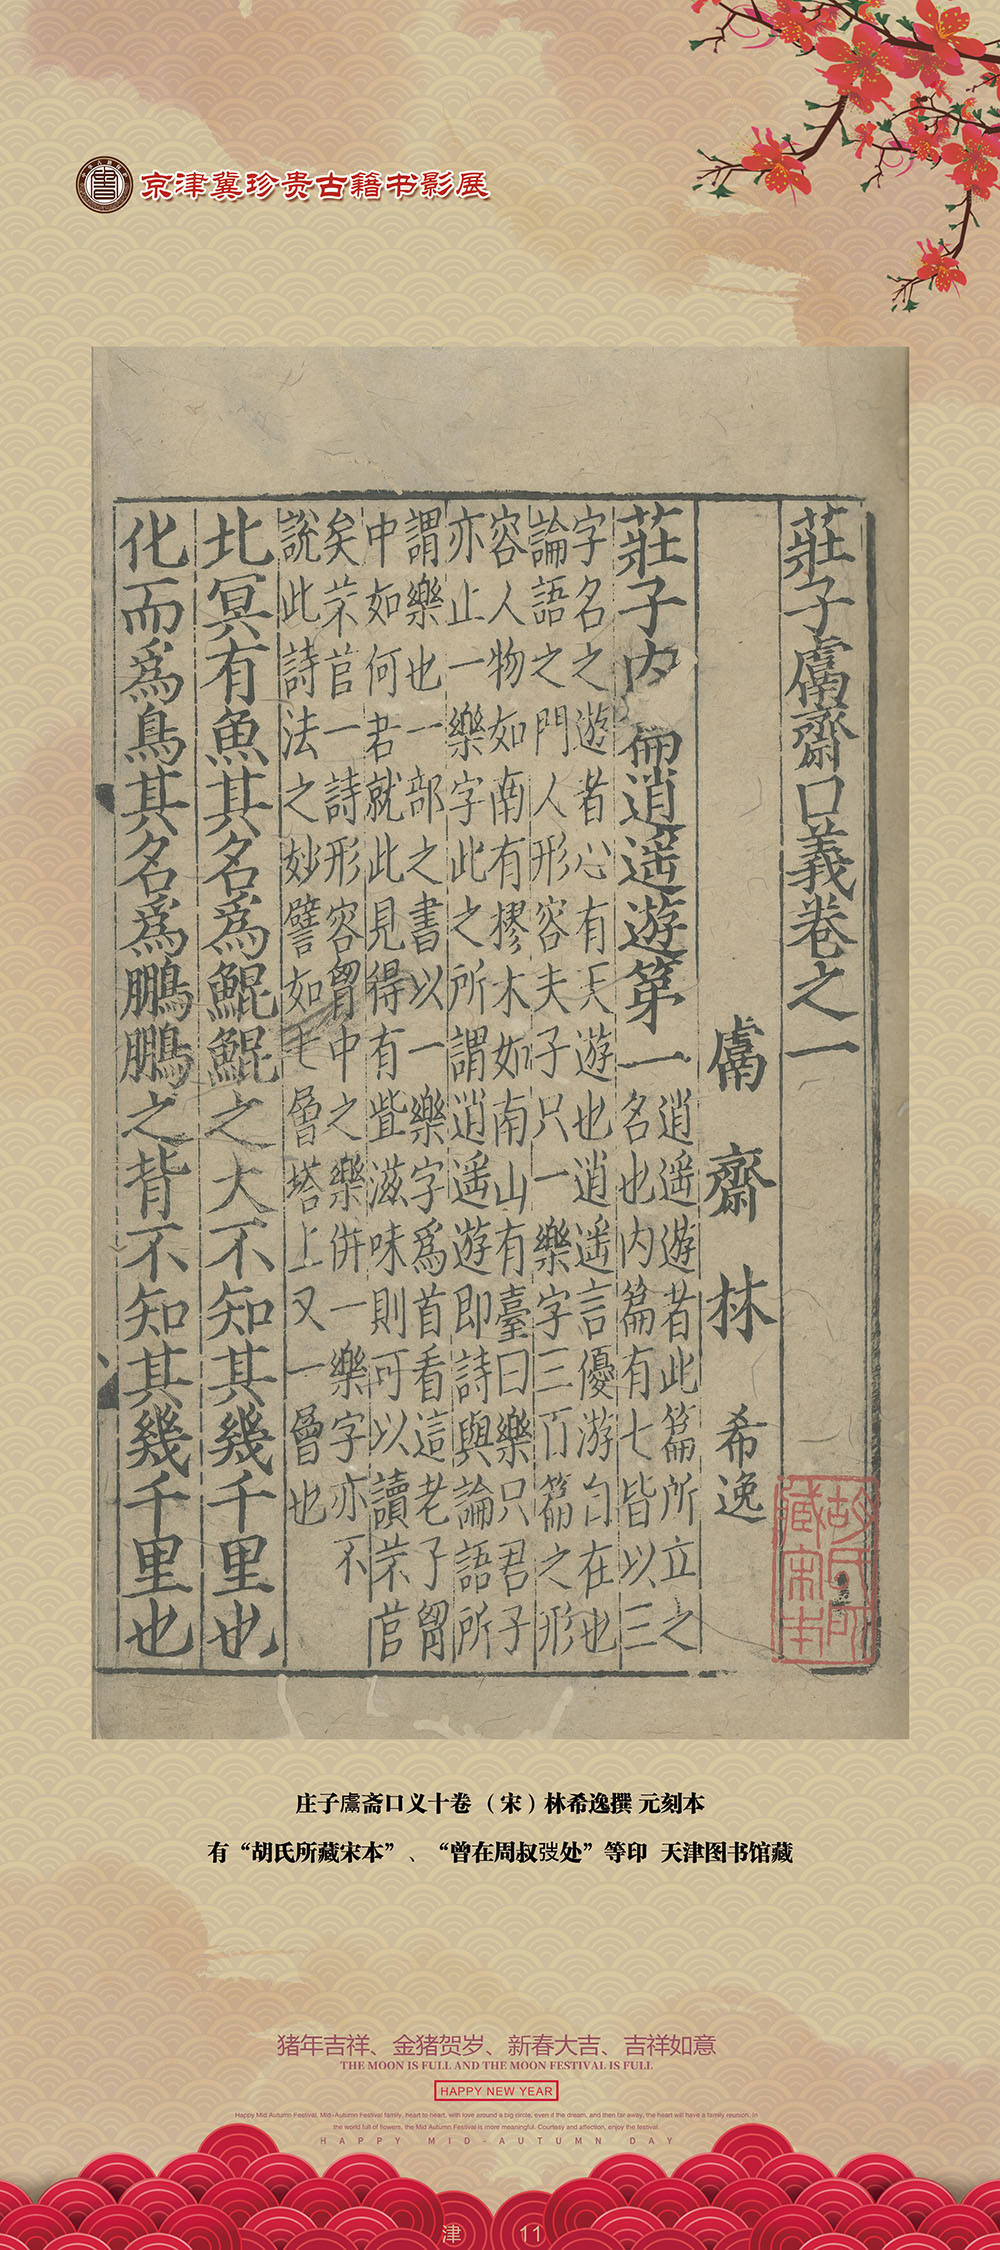 京津冀珍贵古籍书影展
莊子鬳齋口義卷之一
鬳齋林希逸
莊子内篇逍遙遊第一
逍遙遊者此篇所立之
名也内篇有七皆以三
字名之遊者心有天遊也逍遙言優游自在也
論語之門人形容夫子只一樂字三百篇之形
容人物如南有樛木如南山有臺曰樂只君子
亦止一樂字此之所謂逍遙遊即詩與論語所
謂樂也一部之書以一樂字爲首看這老子胷
中如何君就此見得有些滋味則可以讀芣苢
矣芣苢一詩形容胷中之樂併一樂字亦不
説此詩法之妙譬如七層塔上又一層也
北冥有魚其名爲鯤鯤之大不知其幾千里也
化而爲鳥其名爲鵬鵬之背不知其幾千里也
胡氏所
藏宋本
庄子鬳斋口义十卷 （宋）林希逸撰 元刻本
有“胡氏所藏宋本”、“曾在周叔弢处”等印 天津图书馆藏
猪年吉祥、金猪贺岁、新春大吉、吉祥如意
THE MOON IS FULL AND THE MOON FESTIVAL IS FULL
HAPPY NEW YEAR
Happy Mid Autumn Festival, Mid-Autumn Festival family, heart to heart, with love around a big circle, even if the dream, and then far away, the heart will have a family reunion. In
the world full of flowers, the Mid Autumn Festival is more meaningful. Courtesy and affection, enjoy the festival.
HAPPY MID-AUTUMN DAY
津 11